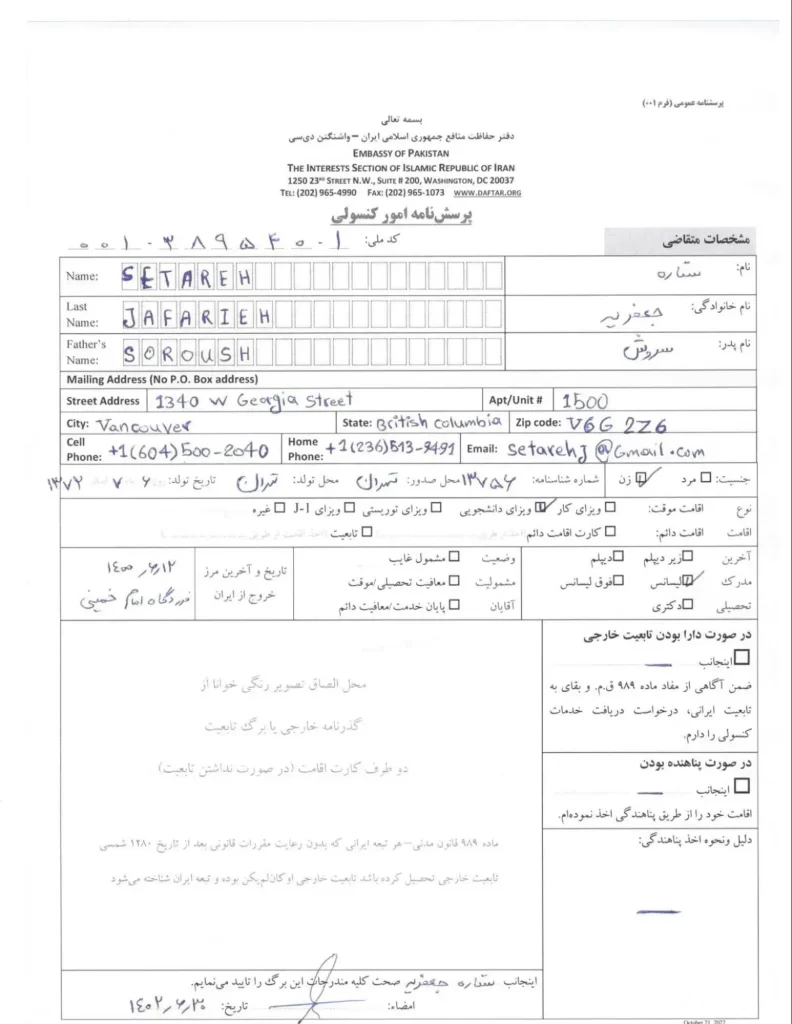 پرسشنامه عمومی (فرم ۰۰۱)
بسمه تعالی
دفتر حفاظت منافع جمهوری اسلامی ایران – واشنگتن دی‌سی
EMBASSY OF PAKISTAN
THE INTERESTS SECTION OF ISLAMIC REPUBLIC OF IRAN
1250 23RD STREET N.W., SUITE # 200, WASHINGTON, DC 20037
TEL: (202) 965-4990 FAX: (202) 965-1073 WWW.DAFTAR.ORG
پرسش‌نامه امور کنسولی
مشخصات متقاضی
کد ملی: ۰۰۱-۳۸۹۵۴۰-۱
Name: SETAREH
نام: ستاره
Last Name: JAFARIEH
نام خانوادگی: جعفریه
Father's Name: SOROUSH
نام پدر: سروش
Mailing Address (No P.O. Box address)
Street Address 1340 W Georgia Street Apt/Unit # 1500
City: Vancouver State: British Columbia Zip code: V6G 2Z6
Cell Phone: +1(604)500-2040 Home Phone: +1(236)513-9491 Email: setarehj@Gmail.com
جنسیت: مرد زن شماره شناسنامه: ۱۳۷۵۶ محل صدور: تهران محل تولد: تهران تاریخ تولد: ۶ ۷ ۱۳۷۲
نوع اقامت موقت: ویزای کار ویزای دانشجویی ویزای توریستی ویزای J-1 غیره
اقامت اقامت دائم: کارت اقامت دائم تابعیت
آخرین زیر دیپلم دیپلم وضعیت مشمول غایب
مدرک لیسانس فوق لیسانس مشمولیت معافیت تحصیلی/موقت
تحصیلی دکتری آقایان پایان خدمت/معافیت دائم
تاریخ و آخرین مرز
خروج از ایران
۱۴۰۰٫۶٫۱۲
فرودگاه امام خمینی
در صورت دارا بودن تابعیت خارجی
اینجانب
ضمن آگاهی از مفاد ماده ۹۸۹ ق.م. و بقای به
تابعیت ایرانی، درخواست دریافت خدمات
کنسولی را دارم.
در صورت پناهنده بودن
اینجانب
اقامت خود را از طریق پناهندگی اخذ نموده‌ام.
دلیل ونحوه اخذ پناهندگی:
محل الصاق تصویر رنگی خوانا از
گذرنامه خارجی یا برگ تابعیت
دو طرف کارت اقامت (در صورت نداشتن تابعیت)
ماده ۹۸۹ قانون مدنی– هر تبعه ایرانی که بدون رعایت مقررات قانونی بعد از تاریخ ۱۲۸۰ شمسی
تابعیت خارجی تحصیل کرده باشد تابعیت خارجی او کان‌لم‌یکن بوده و تبعه ایران شناخته می‌شود
اینجانب ستاره جعفریه صحت کلیه مندرجات این برگ را تایید می‌نمایم.
امضاء: تاریخ: ۱۴۰۲٫۶٫۳۰
October 21, 2022